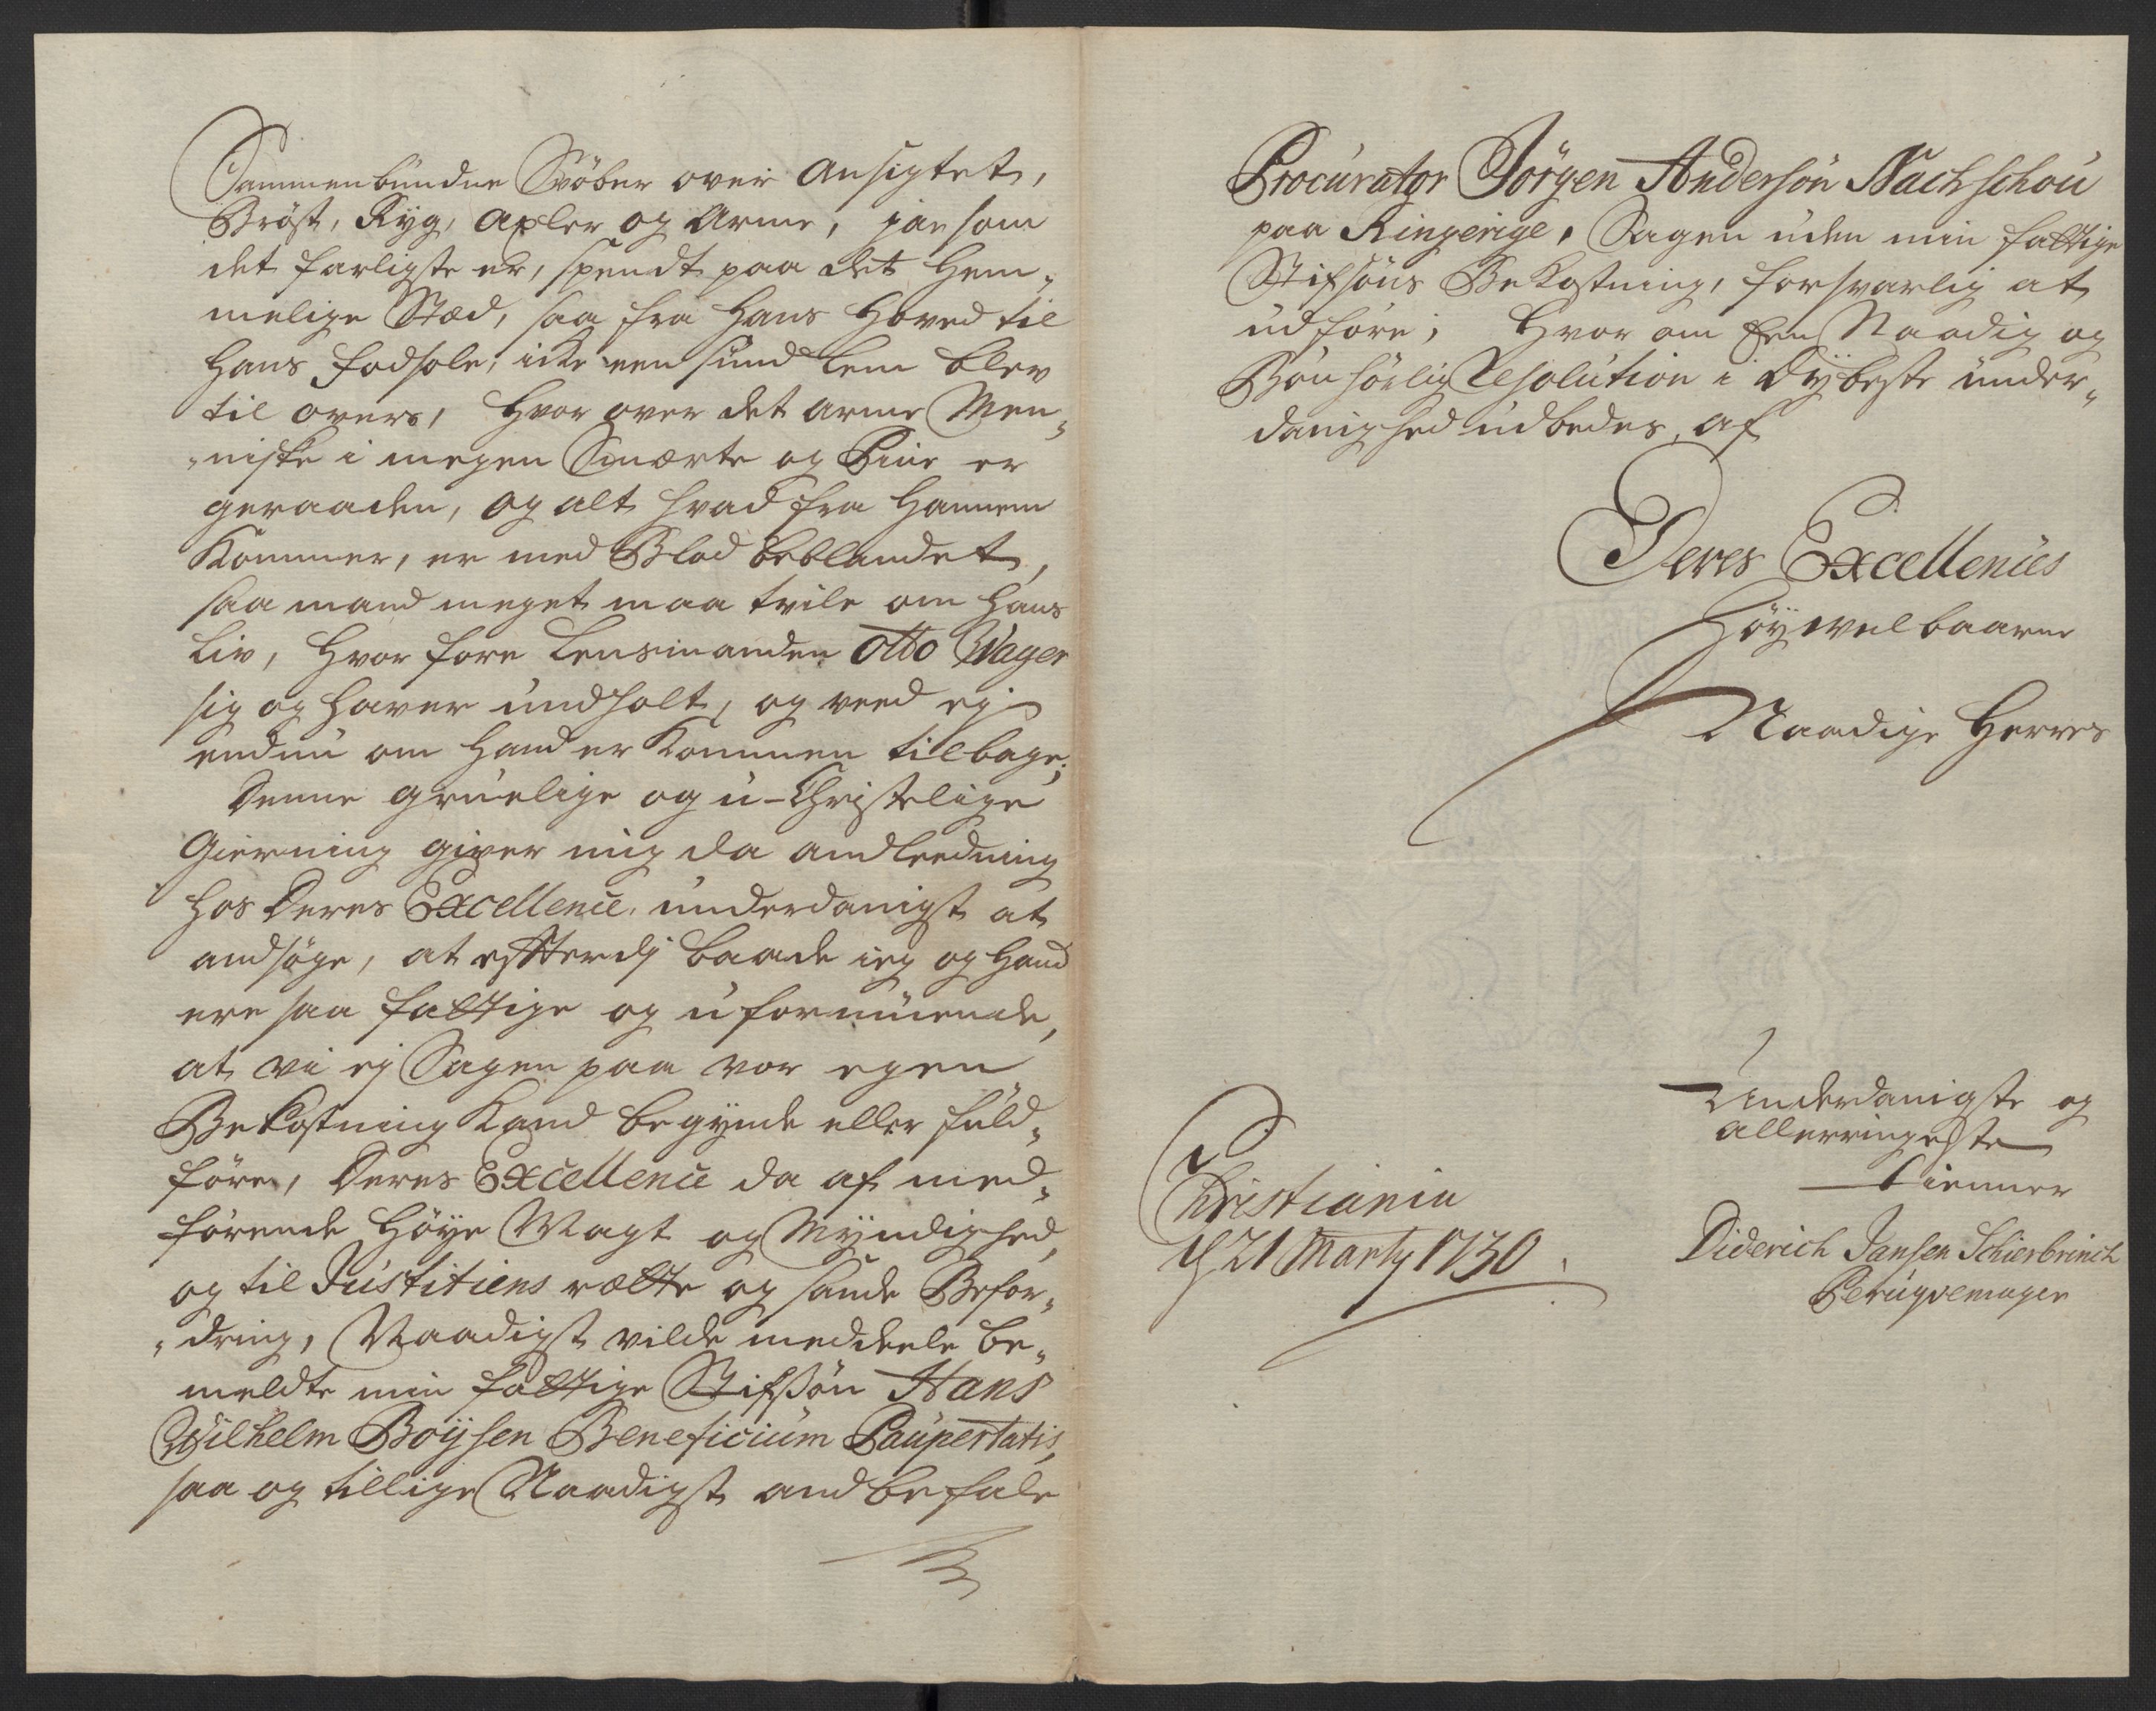 Sammenbundne Svöber over Ansigtet,
Bröst, Ryg, Axler og Arme, jae som
det farligste er, spendt paa det hem-
melige Stæd, saa fra hans Hoved til
hans fodsole, icke een sund Lem blev
til overs, Hvor over det arme Men-
niske i megen Smærte og Piine er
geraaden, og alt hvad fra hannem
Kommer, er med Blod beblandet,
saa mand meget maa tvile om hans
Liv, Hvor fore Lensmanden Otto Wager
sig og haver undholt, og veed ej
endnu om hand er Kommen tilbage;
Denne gruelige og u-Christelige
Gierning giver mig da andleedning
hos Deres Excellence underdanigst at
andsöge, at efftterdj baade ieg og hand
ere saa fattige og uformuende,
at vi ej Sagen paa vor egen
Bekostning Kand begynde eller fuld-
före, Deres Excellence da af med-
förende Höye Magt og Myndighed,
og til Justitiens rætte og sande Befor-
dring, Naadigst vilde meddeele be-
meldte min fattige Stifsön Hans
Wilhelm Boysen Beneficium Paupertatis,
saa og tillige Naadigst andbefale
Procurator Jörgen Andersön Nachschou
paa Ringerige, Sagen uden min fattige
Stifsöns Bekostning, forsvarlig at
udföre; Hvor om Een Naadig og
Bönhörlig Resolution i Dybeste under-
danighed udbedes, af
Deres Excellences
Höyvelbaarne
Naadige Herres
Underdanigste og
allerringeste
Tienner
Christiania
d 21 Marty 1730.
Diderich Jansen Schierbrinch
Peruqvemager